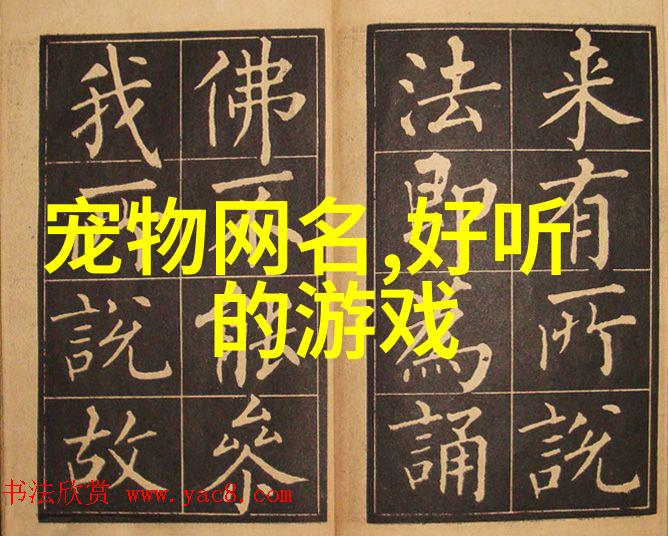 宠物网名,好听
的游戏
来有所說
法即為誦
佛不能叅
我所說故
书法欣赏 www.yac8.com